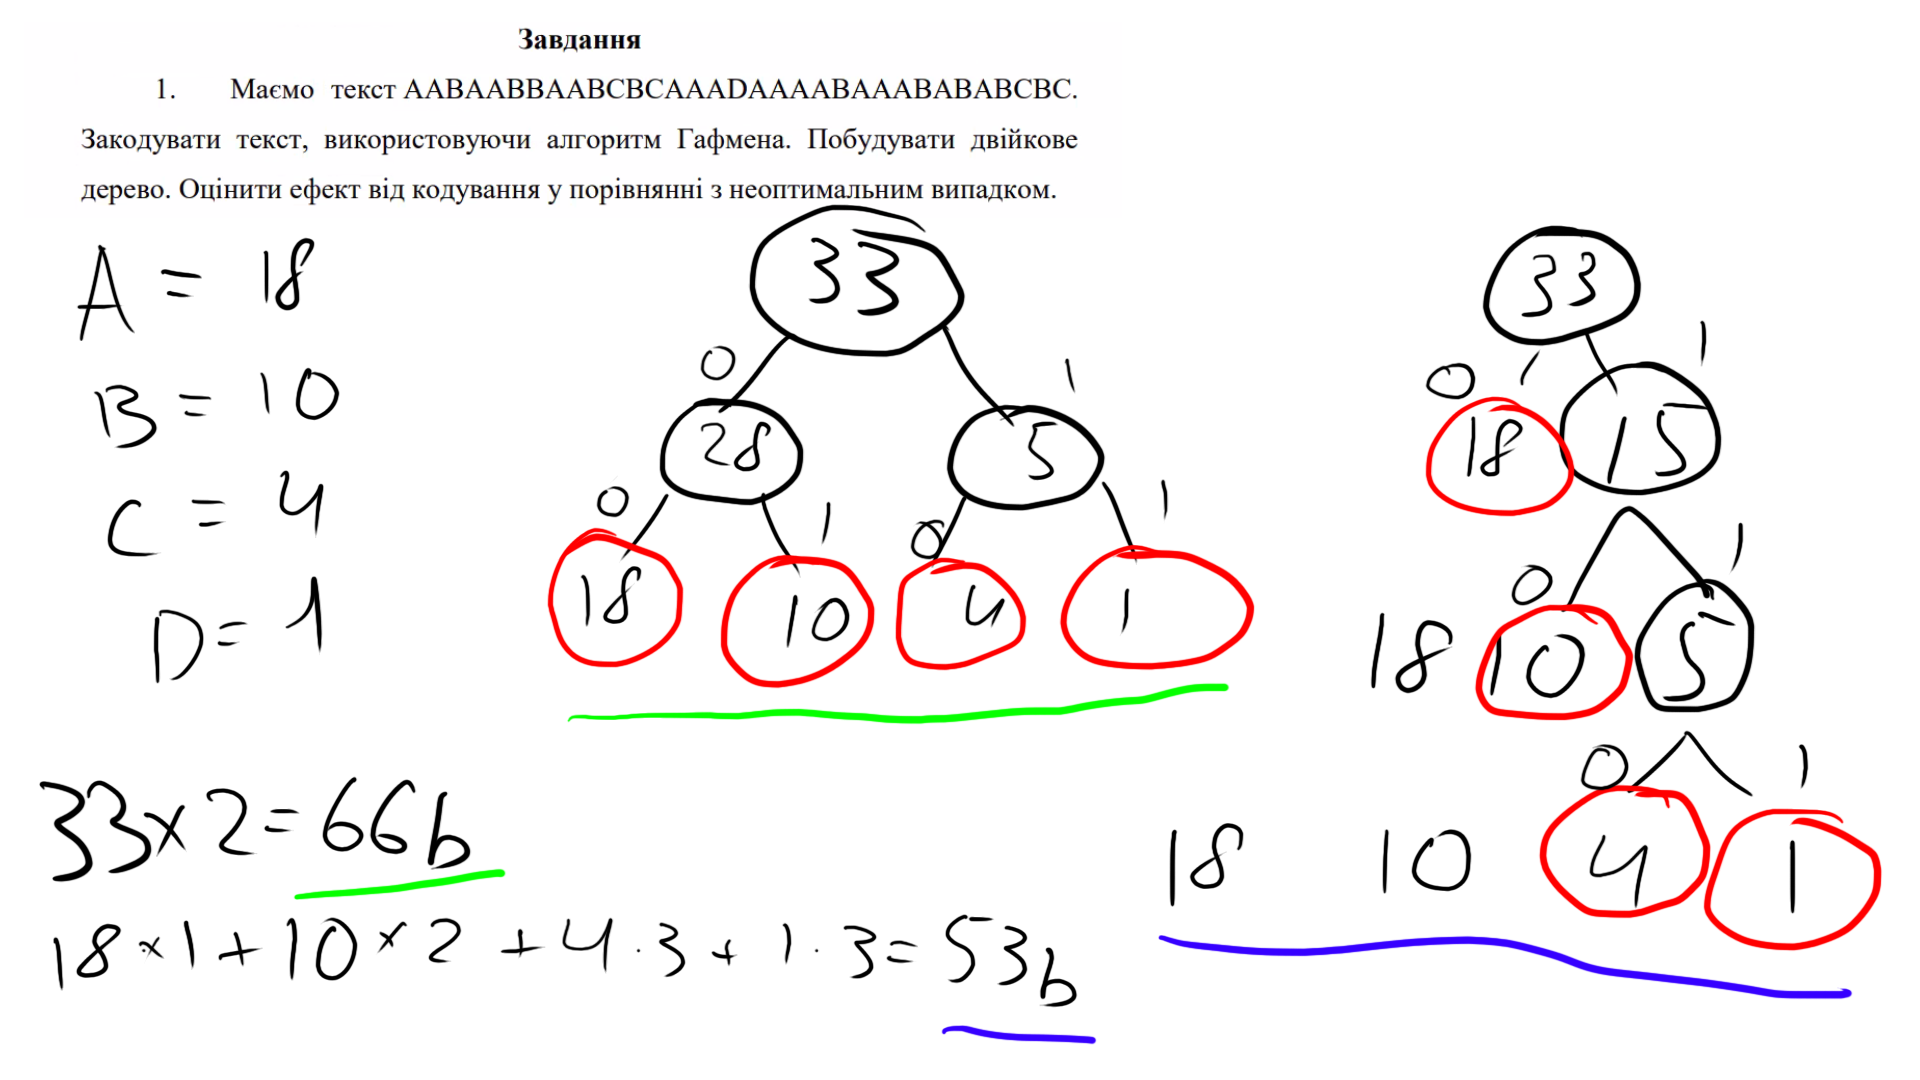 Завдання
1. Маємо текст AABAABBAABCBCAAADAAAABAAABABABCBC.
Закодувати текст, використовуючи алгоритм Гафмена. Побудувати двійкове
дерево. Оцінити ефект від кодування у порівнянні з неоптимальним випадком.
A = 18
B = 10
C = 4
D = 1
33
0 1
28 5
0 1 0 1
18 10 4 1
33
0 1
18 15
0 1
18 10 5
0 1
18 10 4 1
33×2=66b
18×1+10×2+4·3+1·3=53b